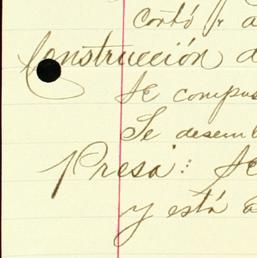 contó
Construcción d
Se compus
Se desemb
Presa: Se
y está a